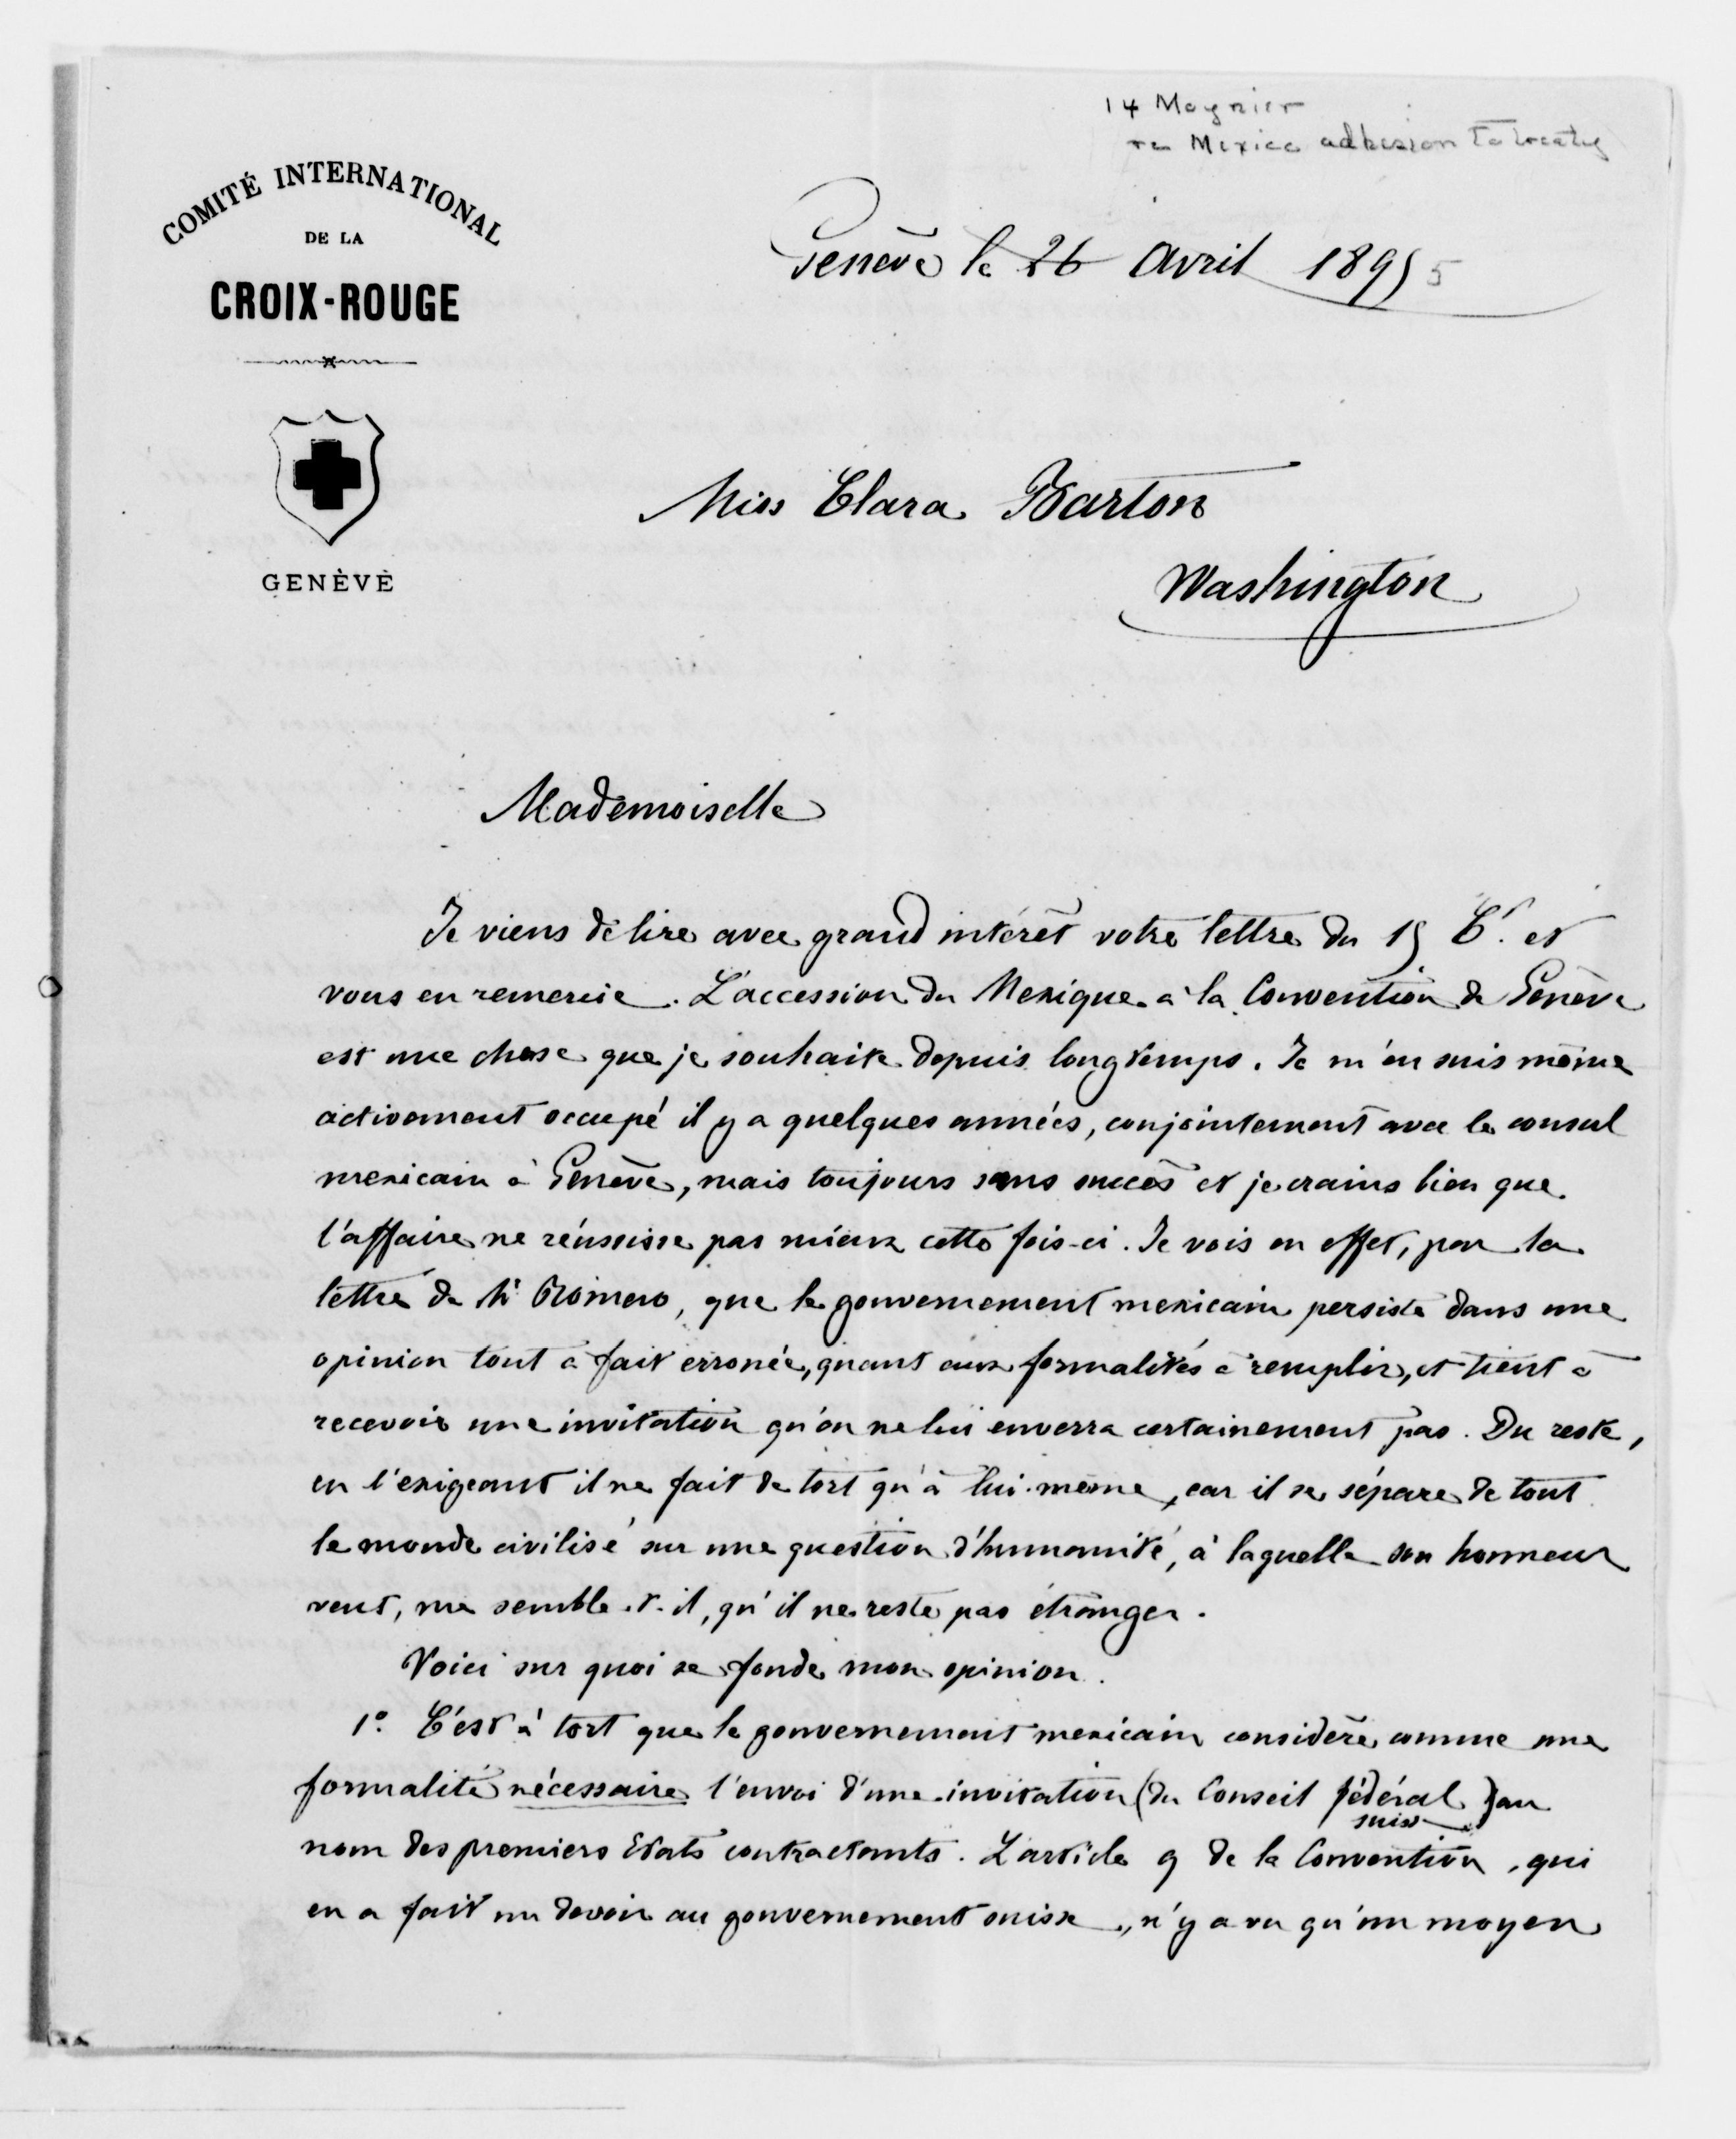 14 Moynier
re Mexico adhesion to treaty
COMITÉ INTERNATIONAL
DE LA
CROIX-ROUGE
GENÈVE
Genève le 26 Avril 1895 5
Miss Clara Barton
Washington
Mademoiselle
Je viens de lire avec grand intérêt votre lettre du 15 Ct. et
vous en remercie. L'accession du Mexique à la Convention de Genève
est une chose que je souhaite depuis longtemps. Je m'en suis même
activement occupé il y a quelques années, conjointement avec le consul
mexicain à Genève, mais toujours sans succès et je crains bien que
l'affaire ne réussisse pas mieux cette fois-ci. Je vois en effet, par la
lettre de Mr Romero, que le gouvernement mexicain persiste dans une
opinion tout à fait erronée, quant aux formalités à remplir, et tient à
recevoir une invitation qu'on ne lui enverra certainement pas. Du reste,
en l'exigeant il ne fait de tort qu'à lui-même, car il se sépare de tout
le monde civilisé sur une question d'humanité, à laquelle son honneur
veut, me semble-t-il, qu'il ne reste pas étranger.
Voici sur quoi se fonde mon opinion.
1o. C'est à tort que le gouvernement mexicain considère comme une
formalité nécessaire l'envoi d'une invitation (du Conseil fédéral suisse) au
nom des premiers Etats contractants. L'article 9 de la Convention, qui
en a fait un devoir au gouvernement suisse, n'y a vu qu'un moyen